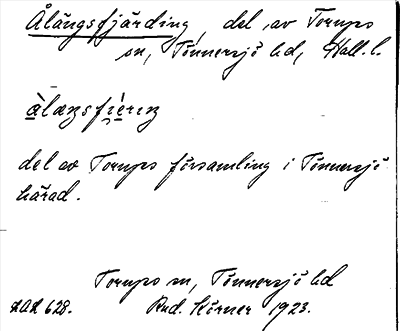 Ålängsfjärding, del av Torups
sn, Tönnersjö hd, Hall. l.
ålæŋsfièrıŋ
del av Torups församling i Tönnersjö
härad.
Torups sn, Tönnersjö hd
Rud. Körner 1923.